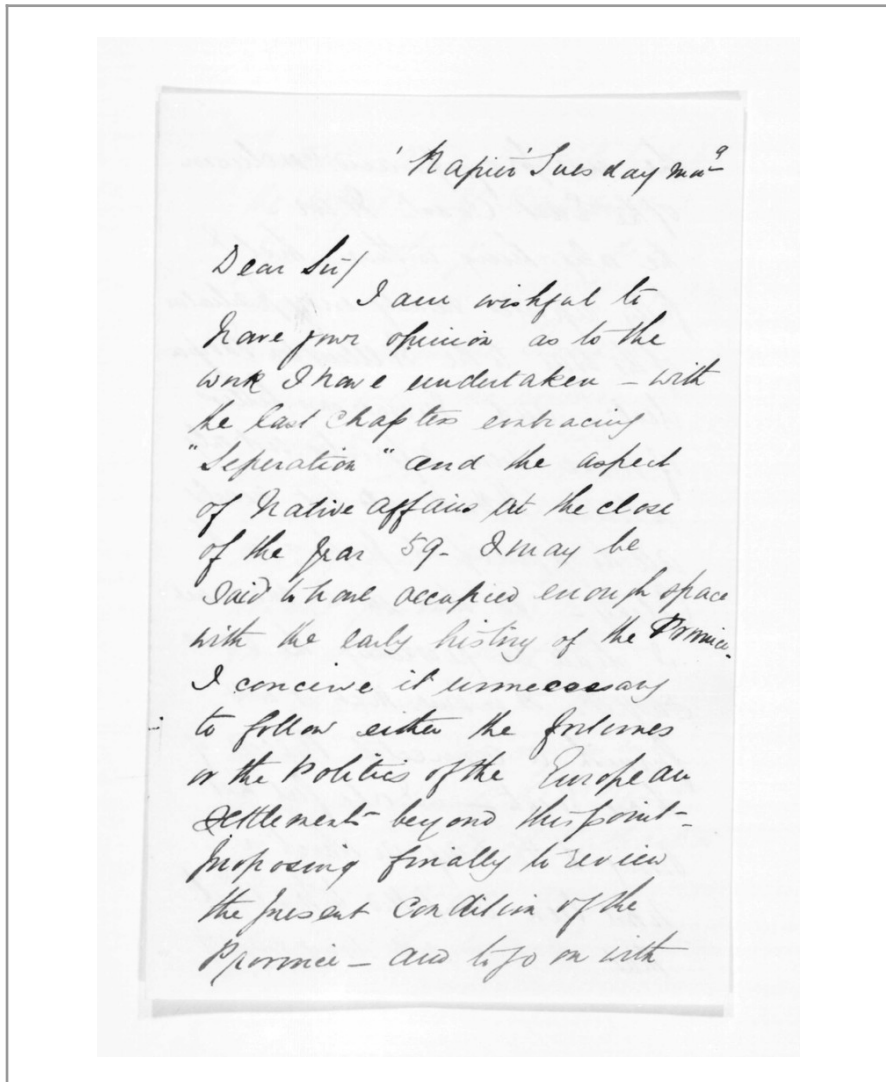 'Napier' Tuesday Mor^g
Dear Sir/
I am wishful to
have your opinion as to the
work I have undertaken – with
the last chapter embracing
"Seperation" and the aspect
of Native affairs at the close
of the year 59 – I may be
said to have occupied enough space
with the early history of the Province.
I conceive it unnecessary
to follow either the fortunes
or the Politics of the European
settlement beyond this point –
proposing finally to review
the present condition of the
Province – and to go on with